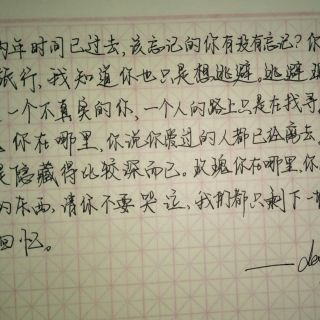 两年时间已过去,该忘记的你有没有忘记?你
旅行,我知道你也只是想逃避。逃避
一个不真实的你,一个人的路上只是在找寻
你在哪里,你说你爱过的人都已经离去
是隐藏得比较深而已。玫瑰你在哪里,你
的东西,请你不要哭泣,我们都只剩下一
回忆。